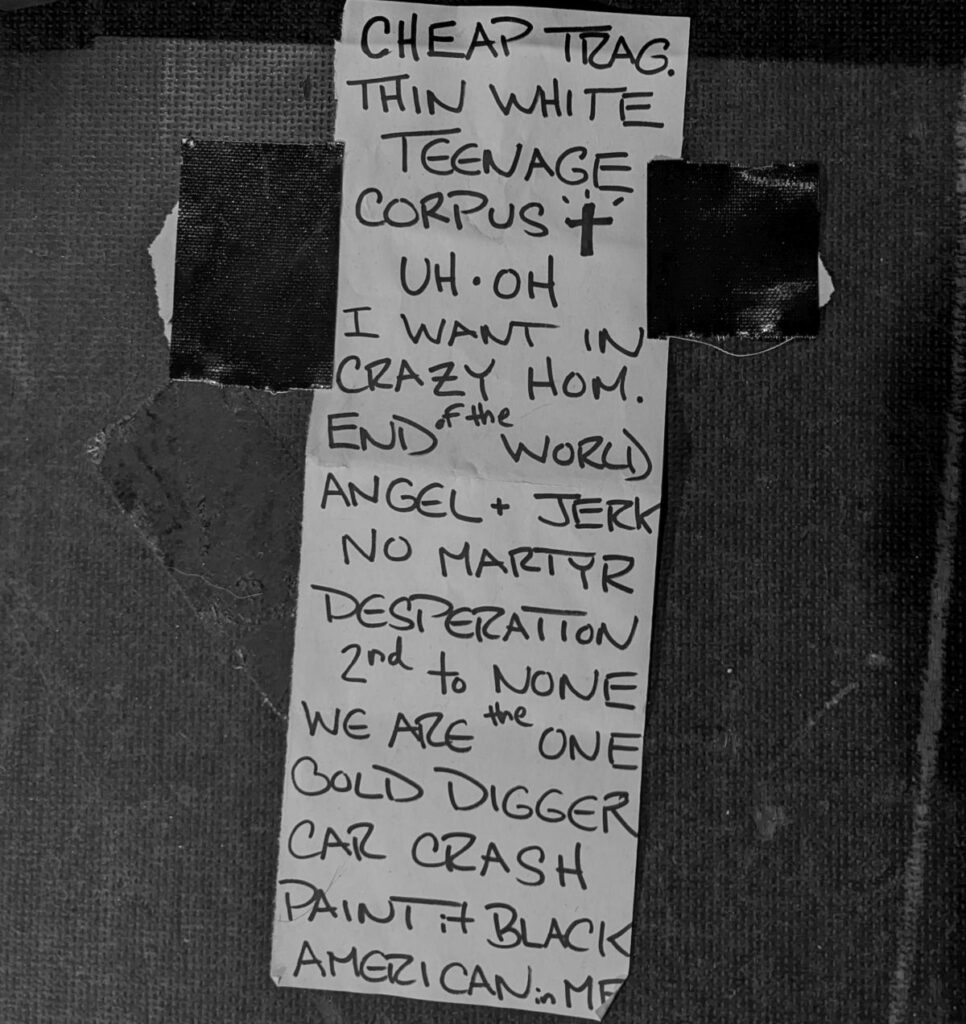 CHEAP TRAG.
THIN WHITE
TEENAGE
CORPUS ✝
UH·OH
I WANT IN
CRAZY HOM.
END of the WORLD
ANGEL + JERK
NO MARTYR
DESPERATION
2nd to NONE
WE ARE the ONE
GOLD DIGGER
CAR CRASH
PAINT it BLACK
AMERICAN in ME